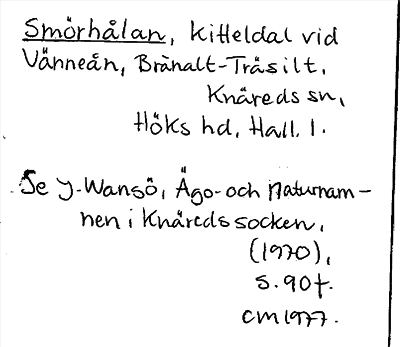 Smörhålan, kitteldal vid
Vänneån, Bränalt-Träsilt,
Knäreds sn,
Höks hd, Hall. l.
Se J-Wansö, Ägo- och naturnam-
nen i Knäreds socken,
(1970),
s. 90f.
CM 1977.